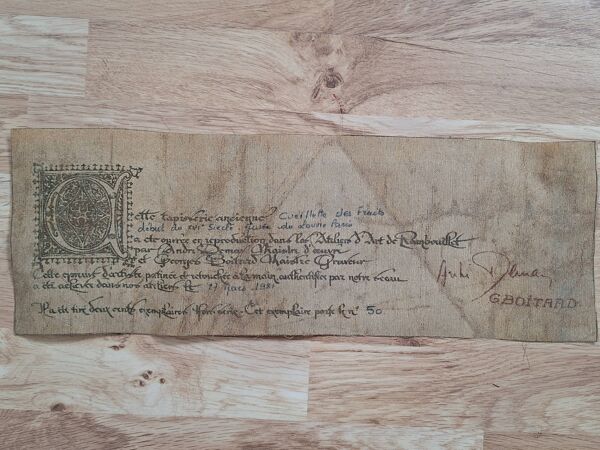 Cette tapisserie ancienne Cueillette des Fruits
début du XVIe Siècle Musée du Louvre Paris
a été œuvrée en reproduction dans les Ateliers d'Art de Rambouillet
par André Maistre d'œuvre
et Georges Boitard Maistre Graveur
Cette épreuve d'artiste patinée et retouchée à la main authentifiée par notre sceau
a été achevée dans nos ateliers le 11 Mars 1981
Il a été tiré deux cents exemplaires Hors série. Cet exemplaire porte le n° 50
André
G.BOITARD